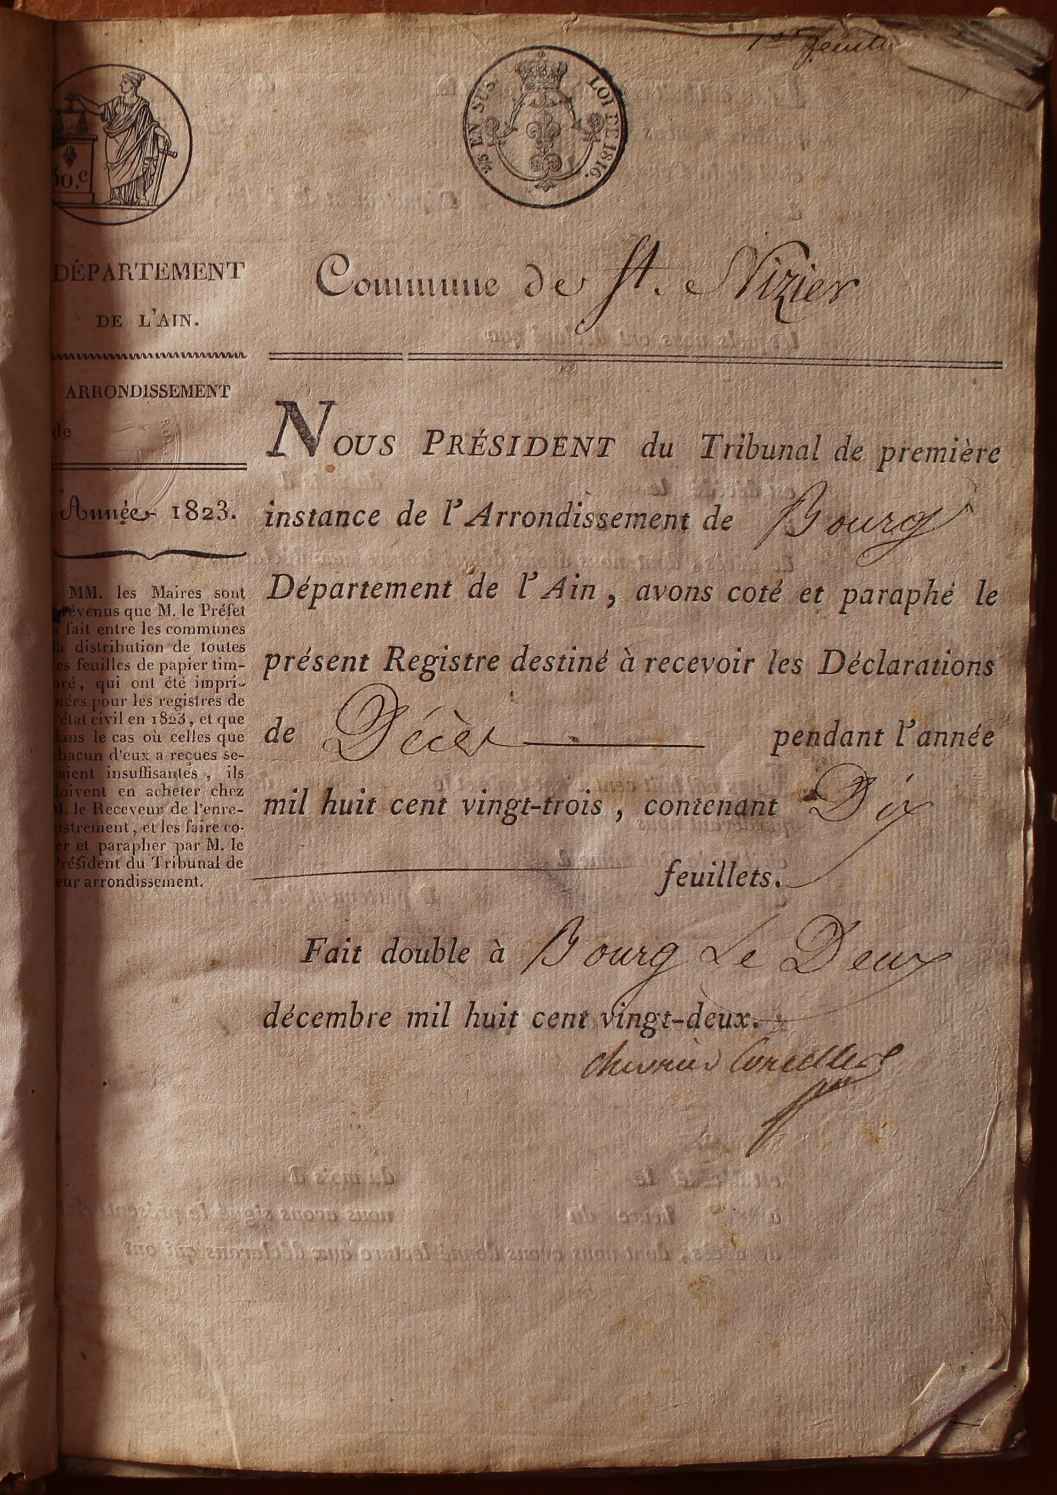 1er feuille
25 EN SUS.
LOI DE 1816.
50.c
DÉPARTEMENT
DE L'AIN.
Commune de St. Nizier
ARRONDISSEMENT
de
Année 1823.
MM. les Maires sont
prévenus que M. le Préfet
a fait entre les communes
la distribution de toutes
les feuilles de papier tim-
bré, qui ont été impri-
mées pour les registres de
l'état civil en 1823, et que
dans le cas où celles que
chacun d'eux a reçues se-
raient insuffisantes, ils
doivent en acheter chez
M. le Receveur de l'enre-
gistrement, et les faire co-
ter et parapher par M. le
Président du Tribunal de
leur arrondissement.
NOUS PRÉSIDENT du Tribunal de première
instance de l'Arrondissement de Bourg
Département de l'Ain, avons coté et paraphé le
présent Registre destiné à recevoir les Déclarations
de Décès pendant l'année
mil huit cent vingt-trois, contenant Dix
feuillets.
Fait double à Bourg Le Deux
décembre mil huit cent vingt-deux.